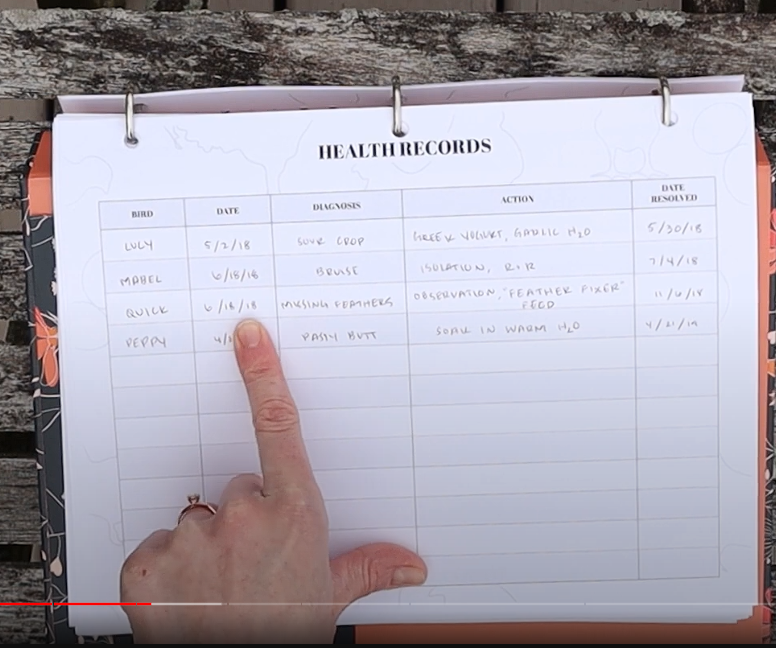 HEALTH RECORDS
BIRD DATE DIAGNOSIS ACTION DATE RESOLVED
LUCY 5/2/18 SOUR CROP GREEK YOGURT, GARLIC H2O 5/30/18
MABEL 6/18/18 BRUISE ISOLATION, R+R 7/4/18
QUICK 6/18/18 MISSING FEATHERS OBSERVATION, "FEATHER FIXER" FEED 11/6/18
PEPPY 4/ PASTY BUTT SOAK IN WARM H2O 4/21/19